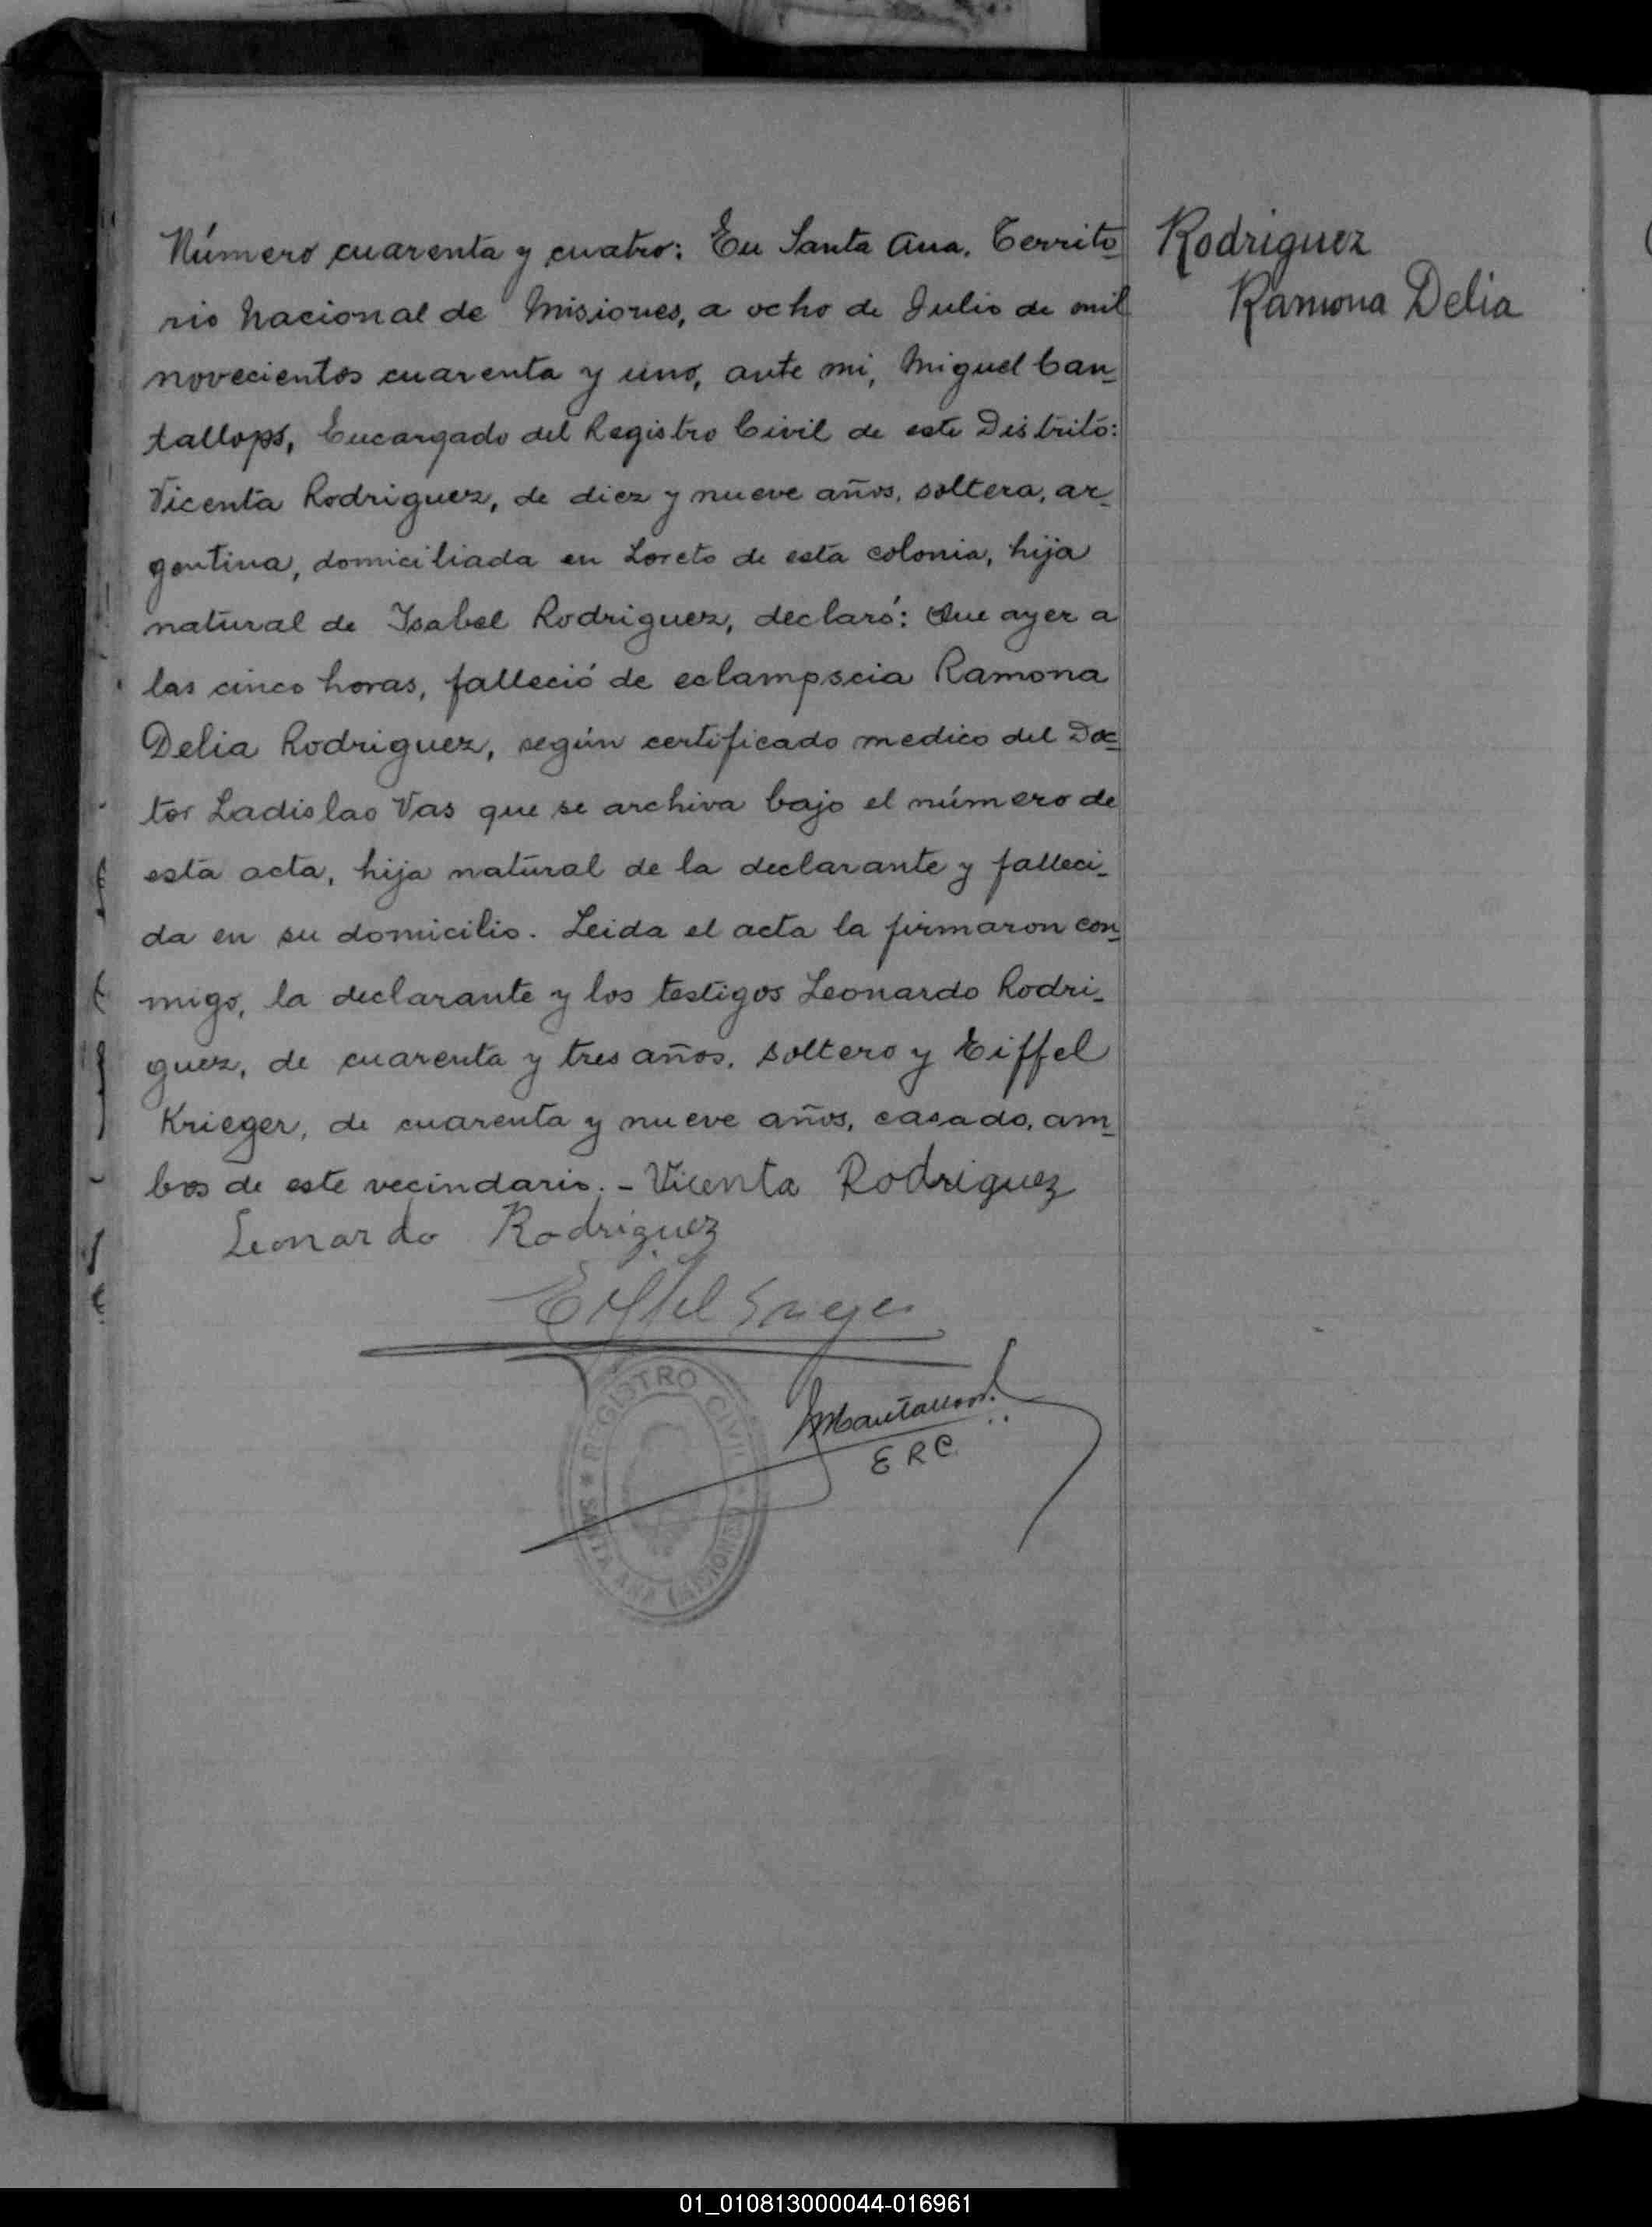 Número cuarenta y cuatro: En Santa Ana, Territo-
rio Nacional de Misiones, a ocho de Julio de mil
novecientos cuarenta y uno, ante mi, Miguel Can-
tallops, Encargado del Registro Civil de este Distrito:
Vicenta Rodriguez, de diez y nueve años, soltera, ar-
gentina, domiciliada en Loreto de esta colonia, hija
natural de Isabel Rodriguez, declaró: Que ayer a
las cinco horas, falleció de eclampscia Ramona
Delia Rodriguez, según certificado medico del Doc-
tor Ladislao Vas que se archiva bajo el número de
esta acta, hija natural de la declarante y falleci-
da en su domicilio. Leida el acta la firmaron con-
migo, la declarante y los testigos Leonardo Rodri-
guez, de cuarenta y tres años, soltero y Eiffel
Krieger, de cuarenta y nueve años, casado, am-
bos de este vecindario. - Vicenta Rodriguez
Leonardo Rodriguez
Eiffel Krieger
MCantallops
E R C
REGISTRO CIVIL
* SANTA ANA (MISIONES) *
Rodriguez
Ramona Delia
01_010813000044-016961